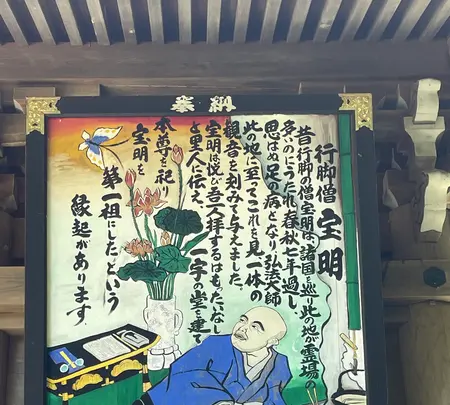 奉納
行脚僧 宝明
昔行脚の僧宝明は、諸国を巡り此の地が霊場の
多いのにうたれ春秋七年過し
思はぬ足の病となり、弘法大師
此の地に至ってこれを見一体の
観音を刻みて与えました。
宝明は悦び吾一人拝するはもったいなし
と里人に伝え、一宇の堂を建て
本尊を祀り
宝明を
第一祖にした、という
縁起があります。